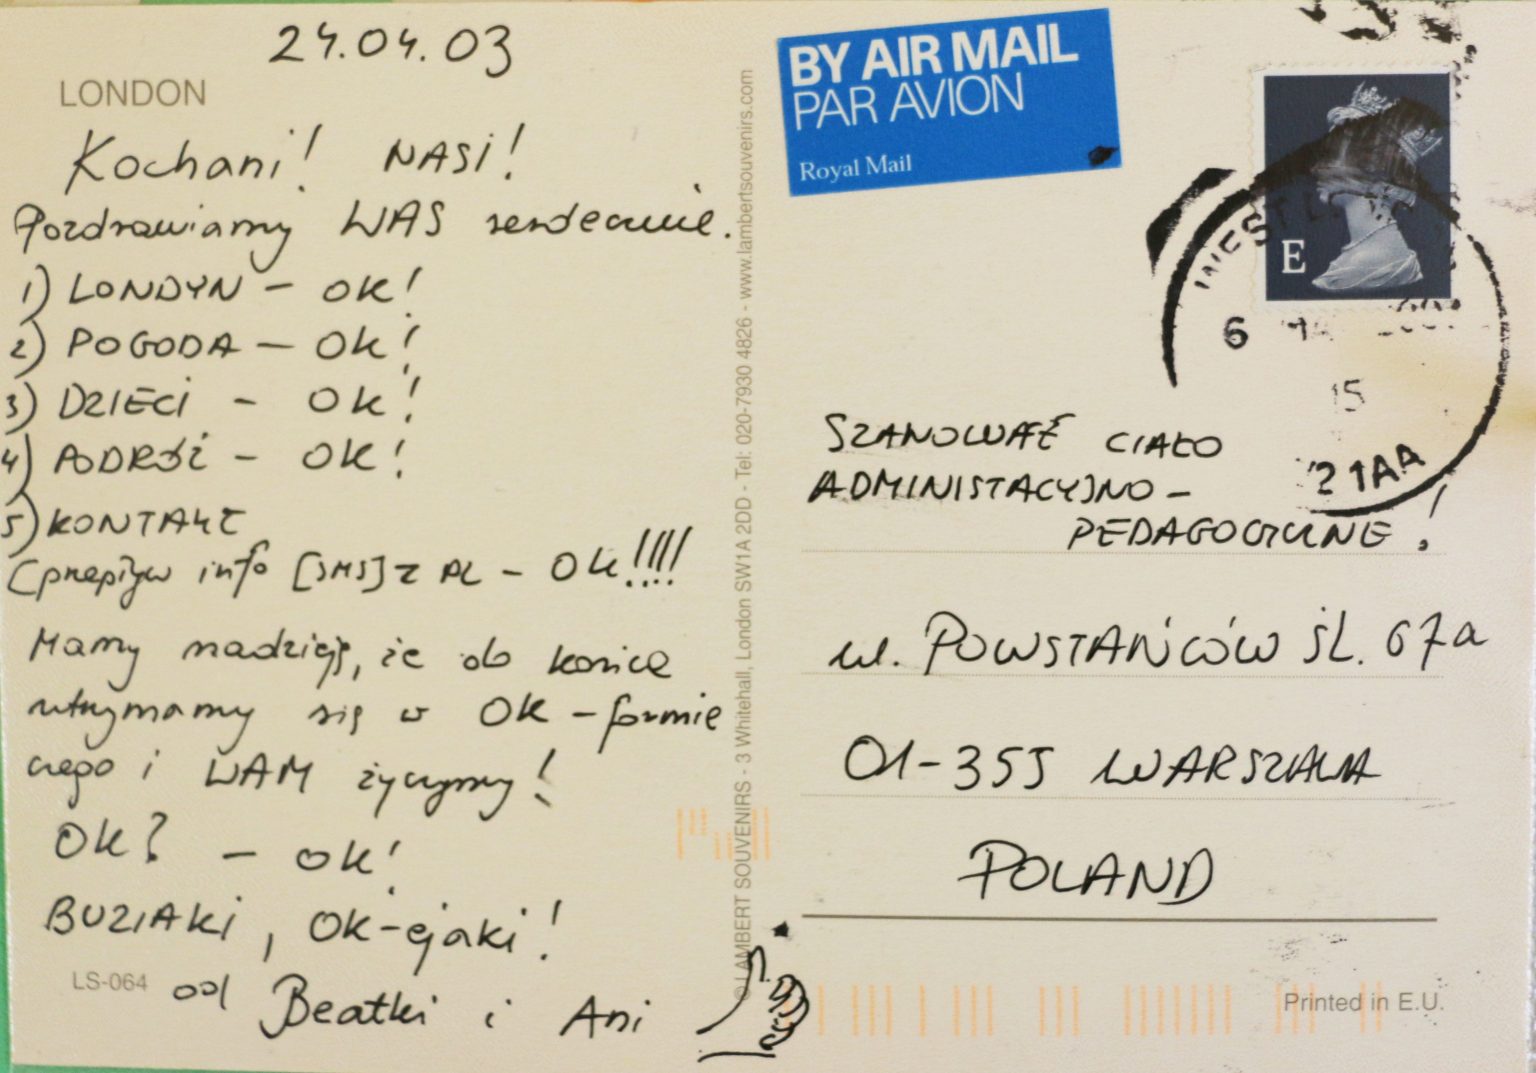 24.04.03
LONDON
Kochani! NASI!
Pozdrawiamy WAS serdecznie.
1) LONDYN - OK!
2) POGODA - OK!
3) DZIECI - OK!
4) PODRÓŻ - OK!
5) KONTAKT
(przepływ info [SMS] z PL - OK!!!!
Mamy nadzieję, że do końca
utrzymamy się w OK - formie
czego i WAM życzymy!
OK? - OK!
BUZIAKI, OK-ejaki!
LS-064
od Beatki i Ani
© LAMBERT SOUVENIRS - 3 Whitehall, London SW1A 2DD - Tel: 020-7930 4826 - www.lambertsouvenirs.com
BY AIR MAIL
PAR AVION
Royal Mail
E
6
15
21AA
SZANOWNE CIAŁO
ADMINISTACYJNO -
PEDAGOGICZNE!
ul. POWSTAŃCÓW ŚL. 67a
01-355 WARSZAWA
POLAND
Printed in E.U.